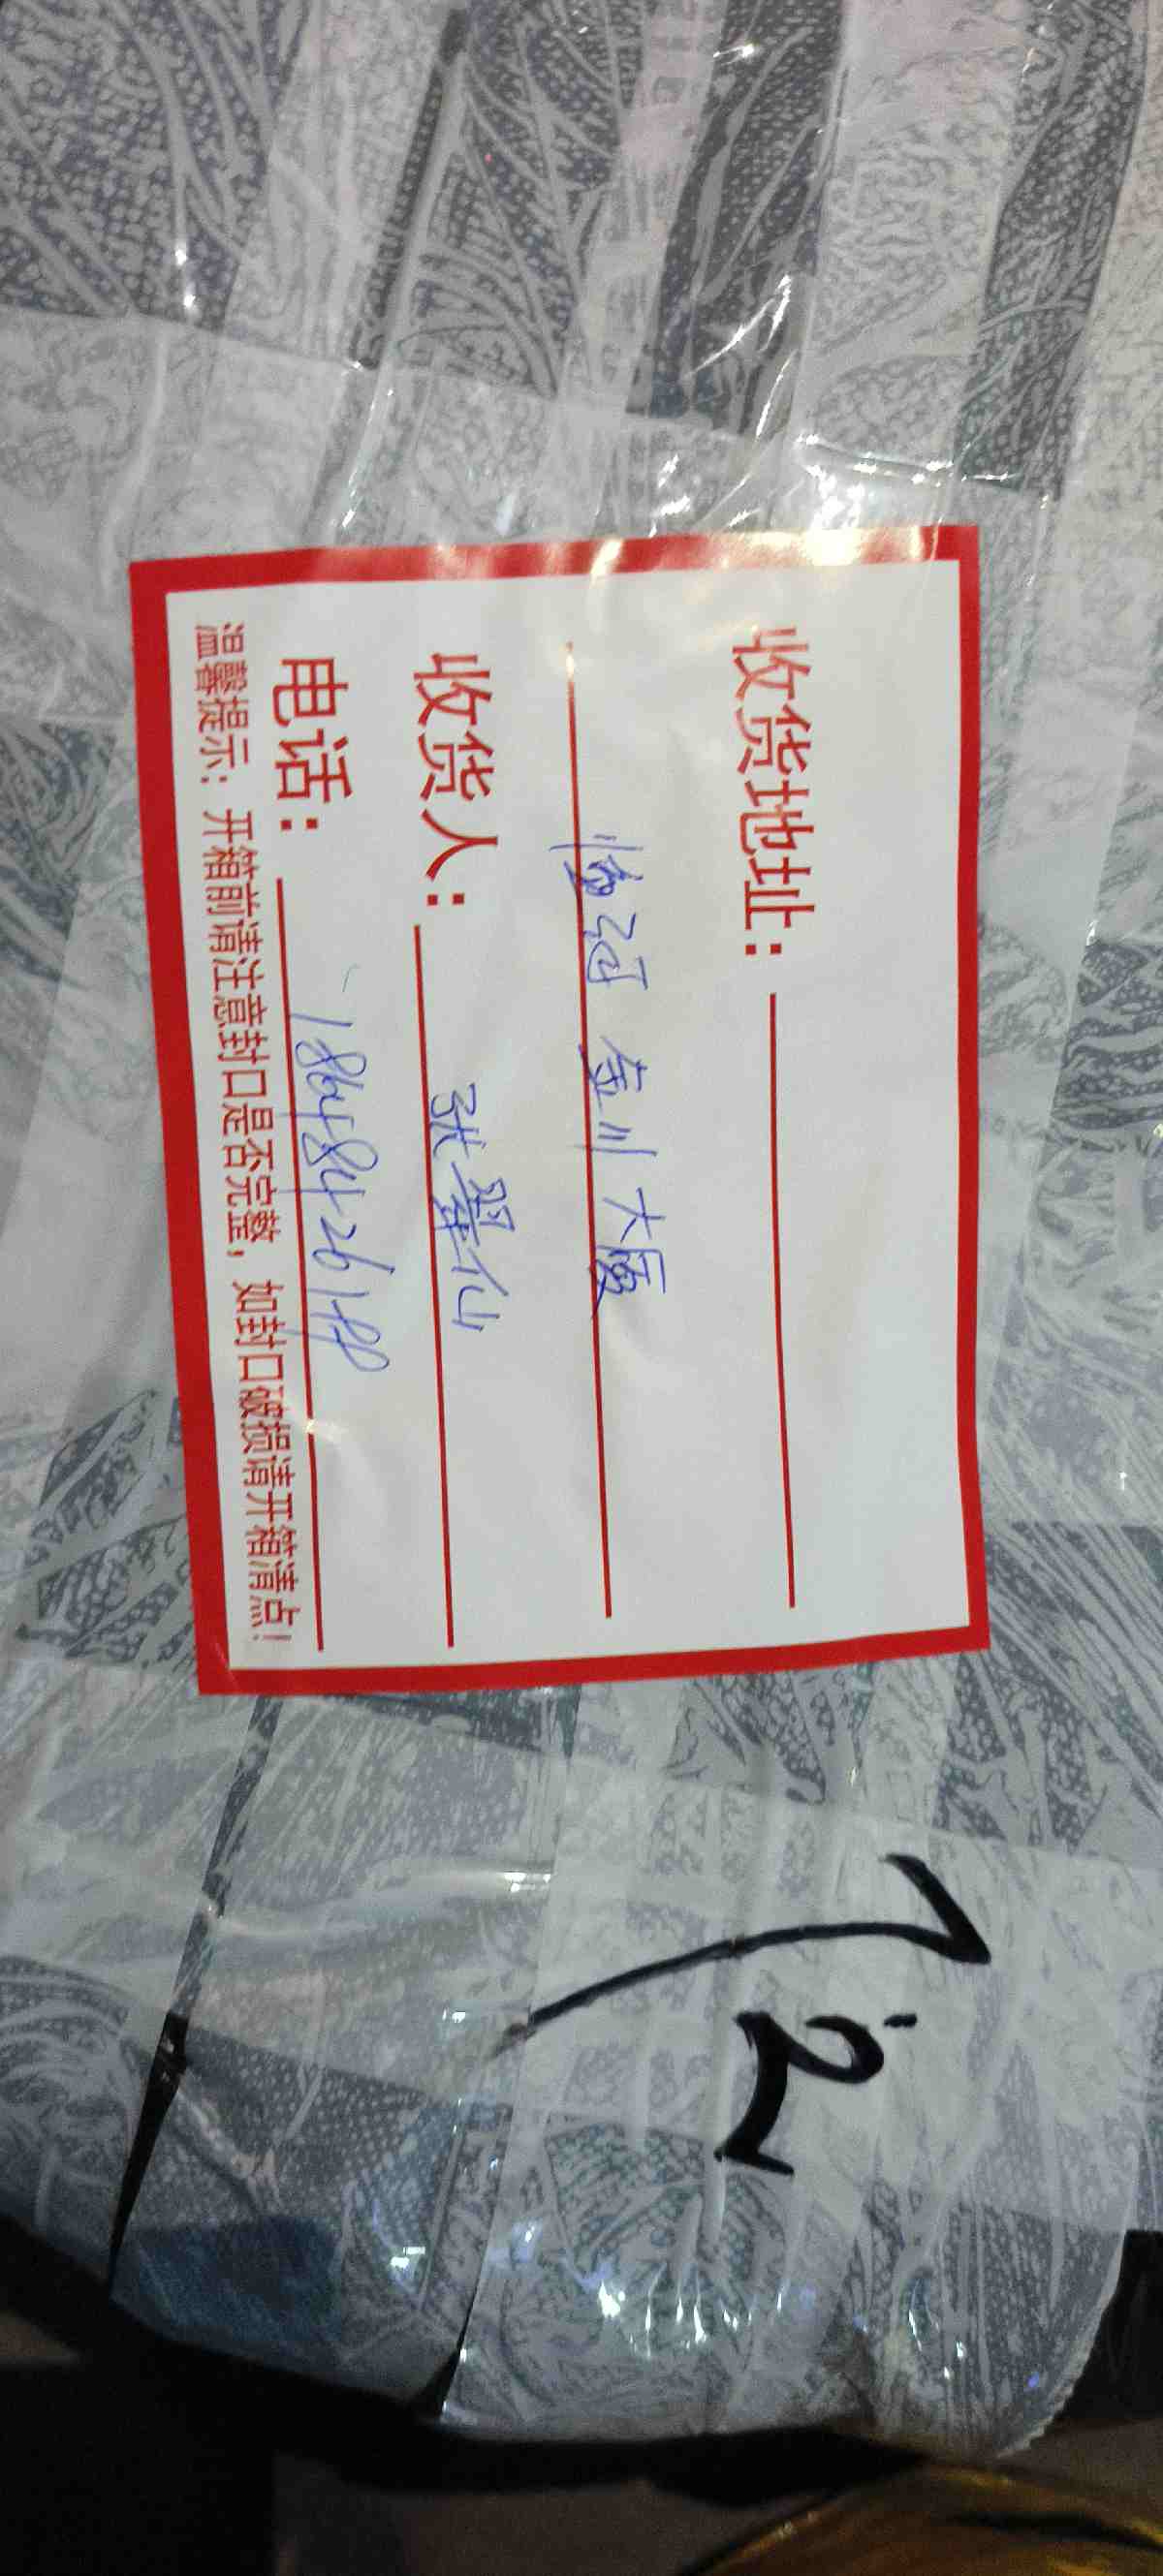 收货地址：
临河 金川大厦
收货人：张翠仙
电话：
温馨提示：开箱前请注意封口是否完整，如封口破损请开箱清点！